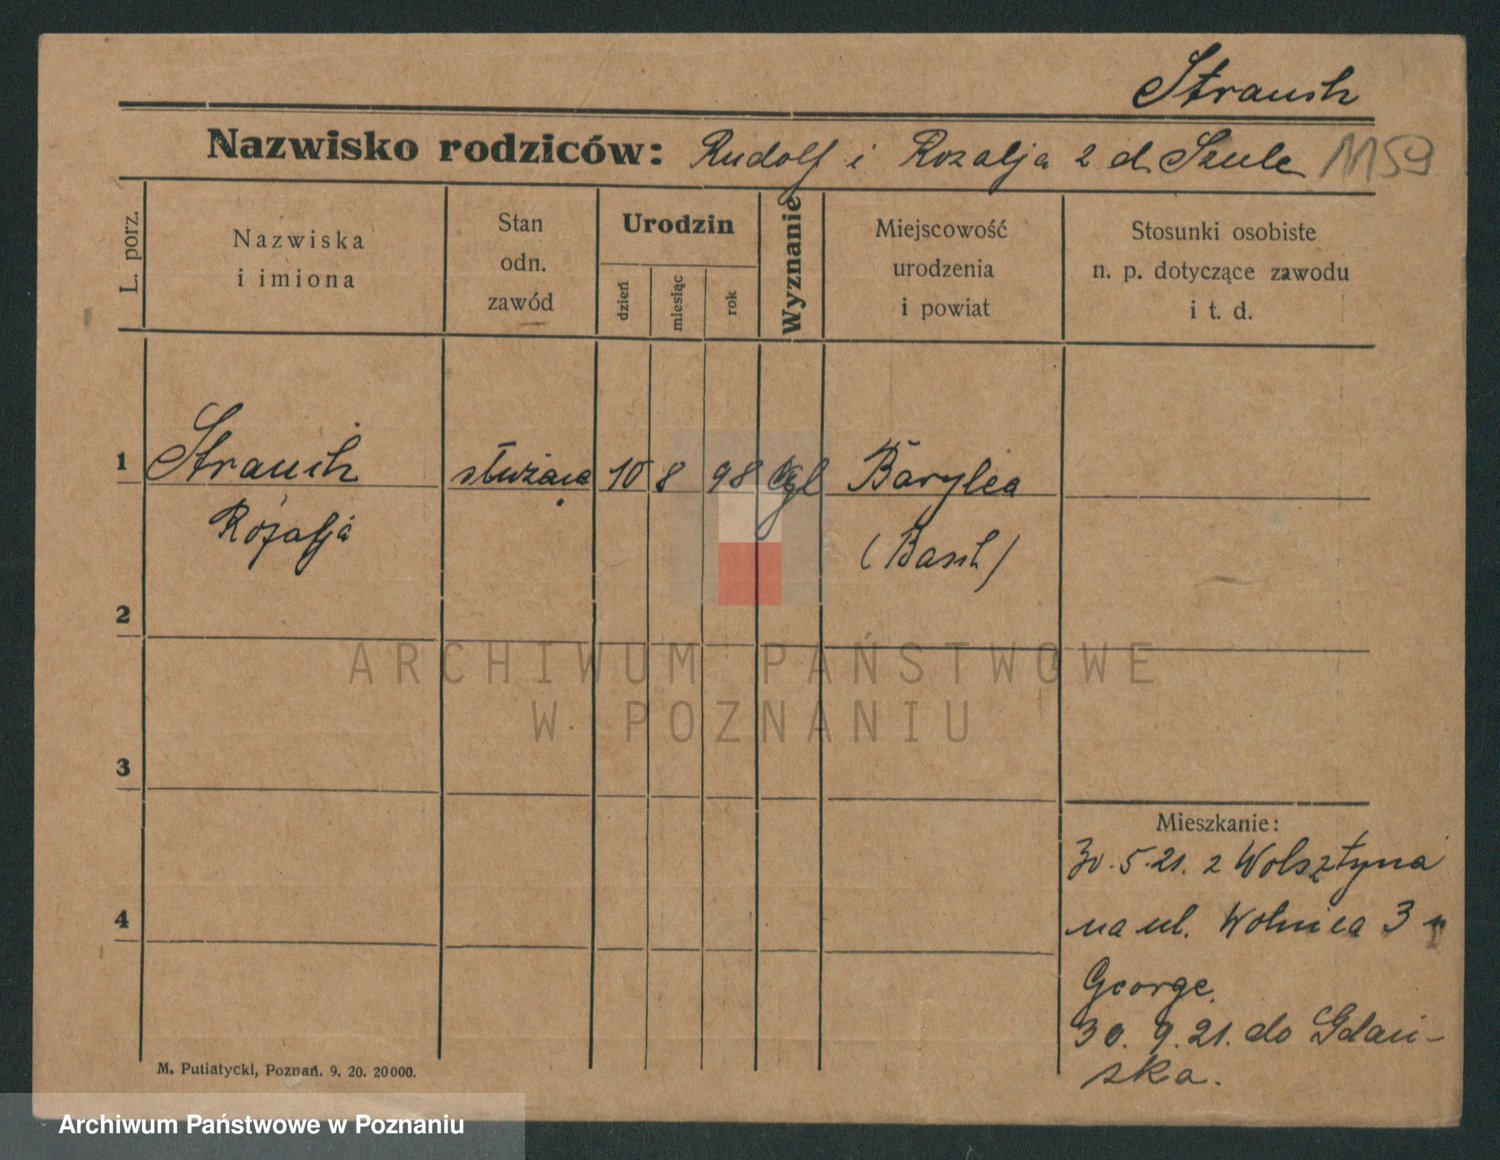 Strauch
Nazwisko rodziców: Rudolf i Rozalja z d. Szulc 1159
L. porz.
Nazwiska
i imiona
Stan
odn.
zawód
Urodzin
dzień
miesiąc
rok
Wyznanie
Miejscowość
urodzenia
i powiat
Stosunki osobiste
n. p. dotyczące zawodu
i t. d.
1 Strauch służąca 10 8 98 Barylca
Rozalja (Basch)
2
3
4
Mieszkanie:
30.5.21. z Wolsztyna
na ul. Wolnica 3
George.
30.9.21. do Gdań-
ska.
M. Putiatycki, Poznań. 9. 20. 20000.
ARCHIWUM PAŃSTWOWE
W POZNANIU
Archiwum Państwowe w Poznaniu